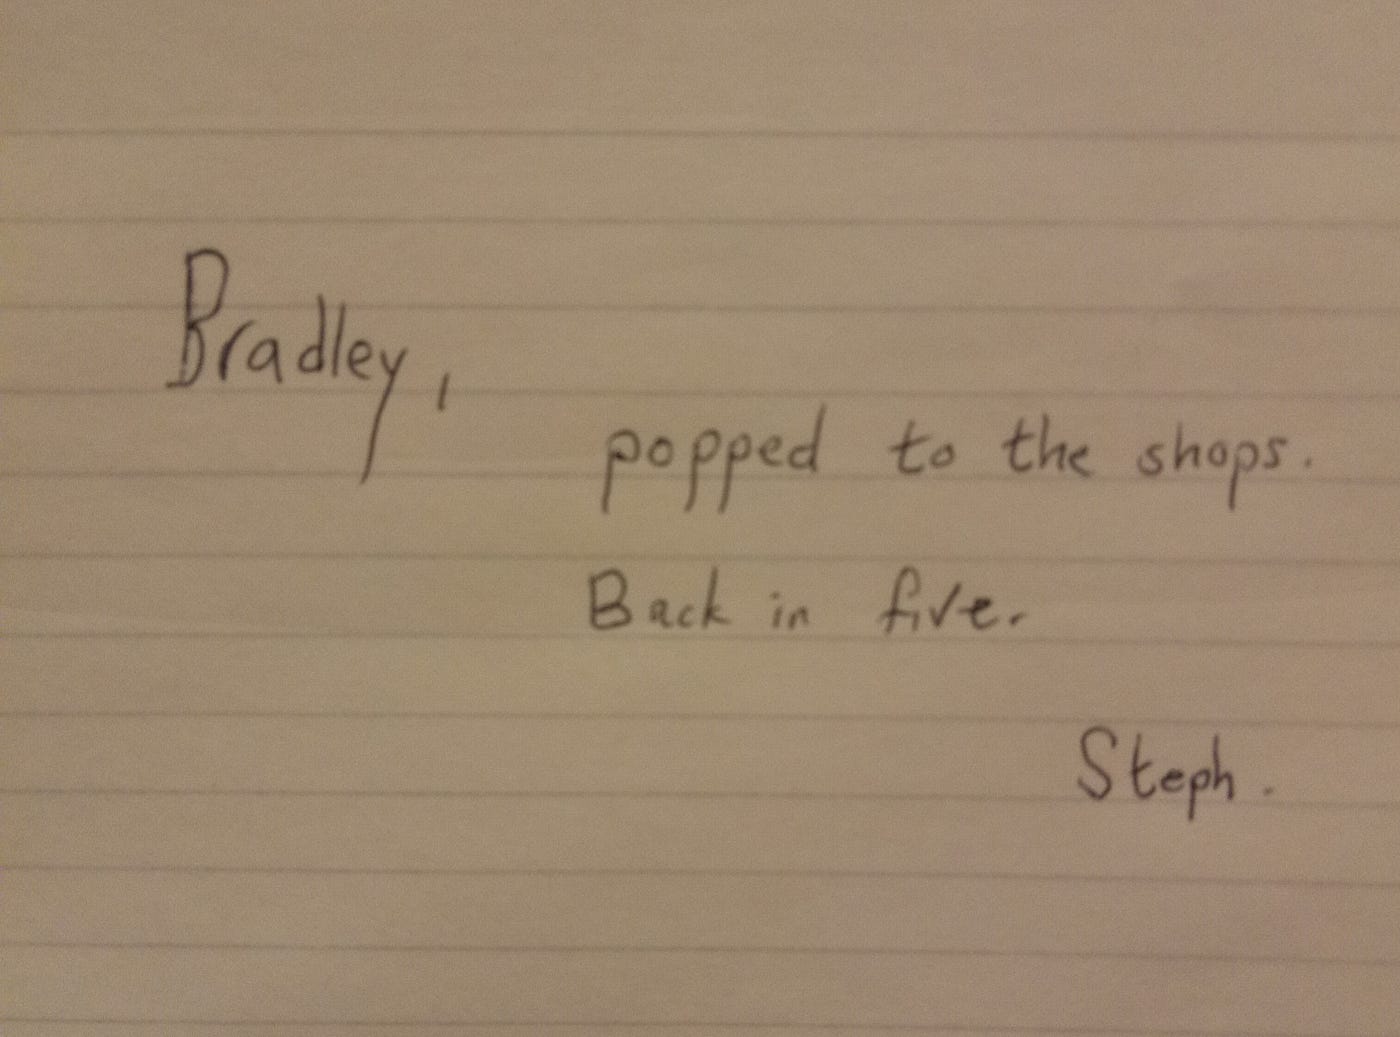 Bradley,
popped to the shops.
Back in five.
Steph.